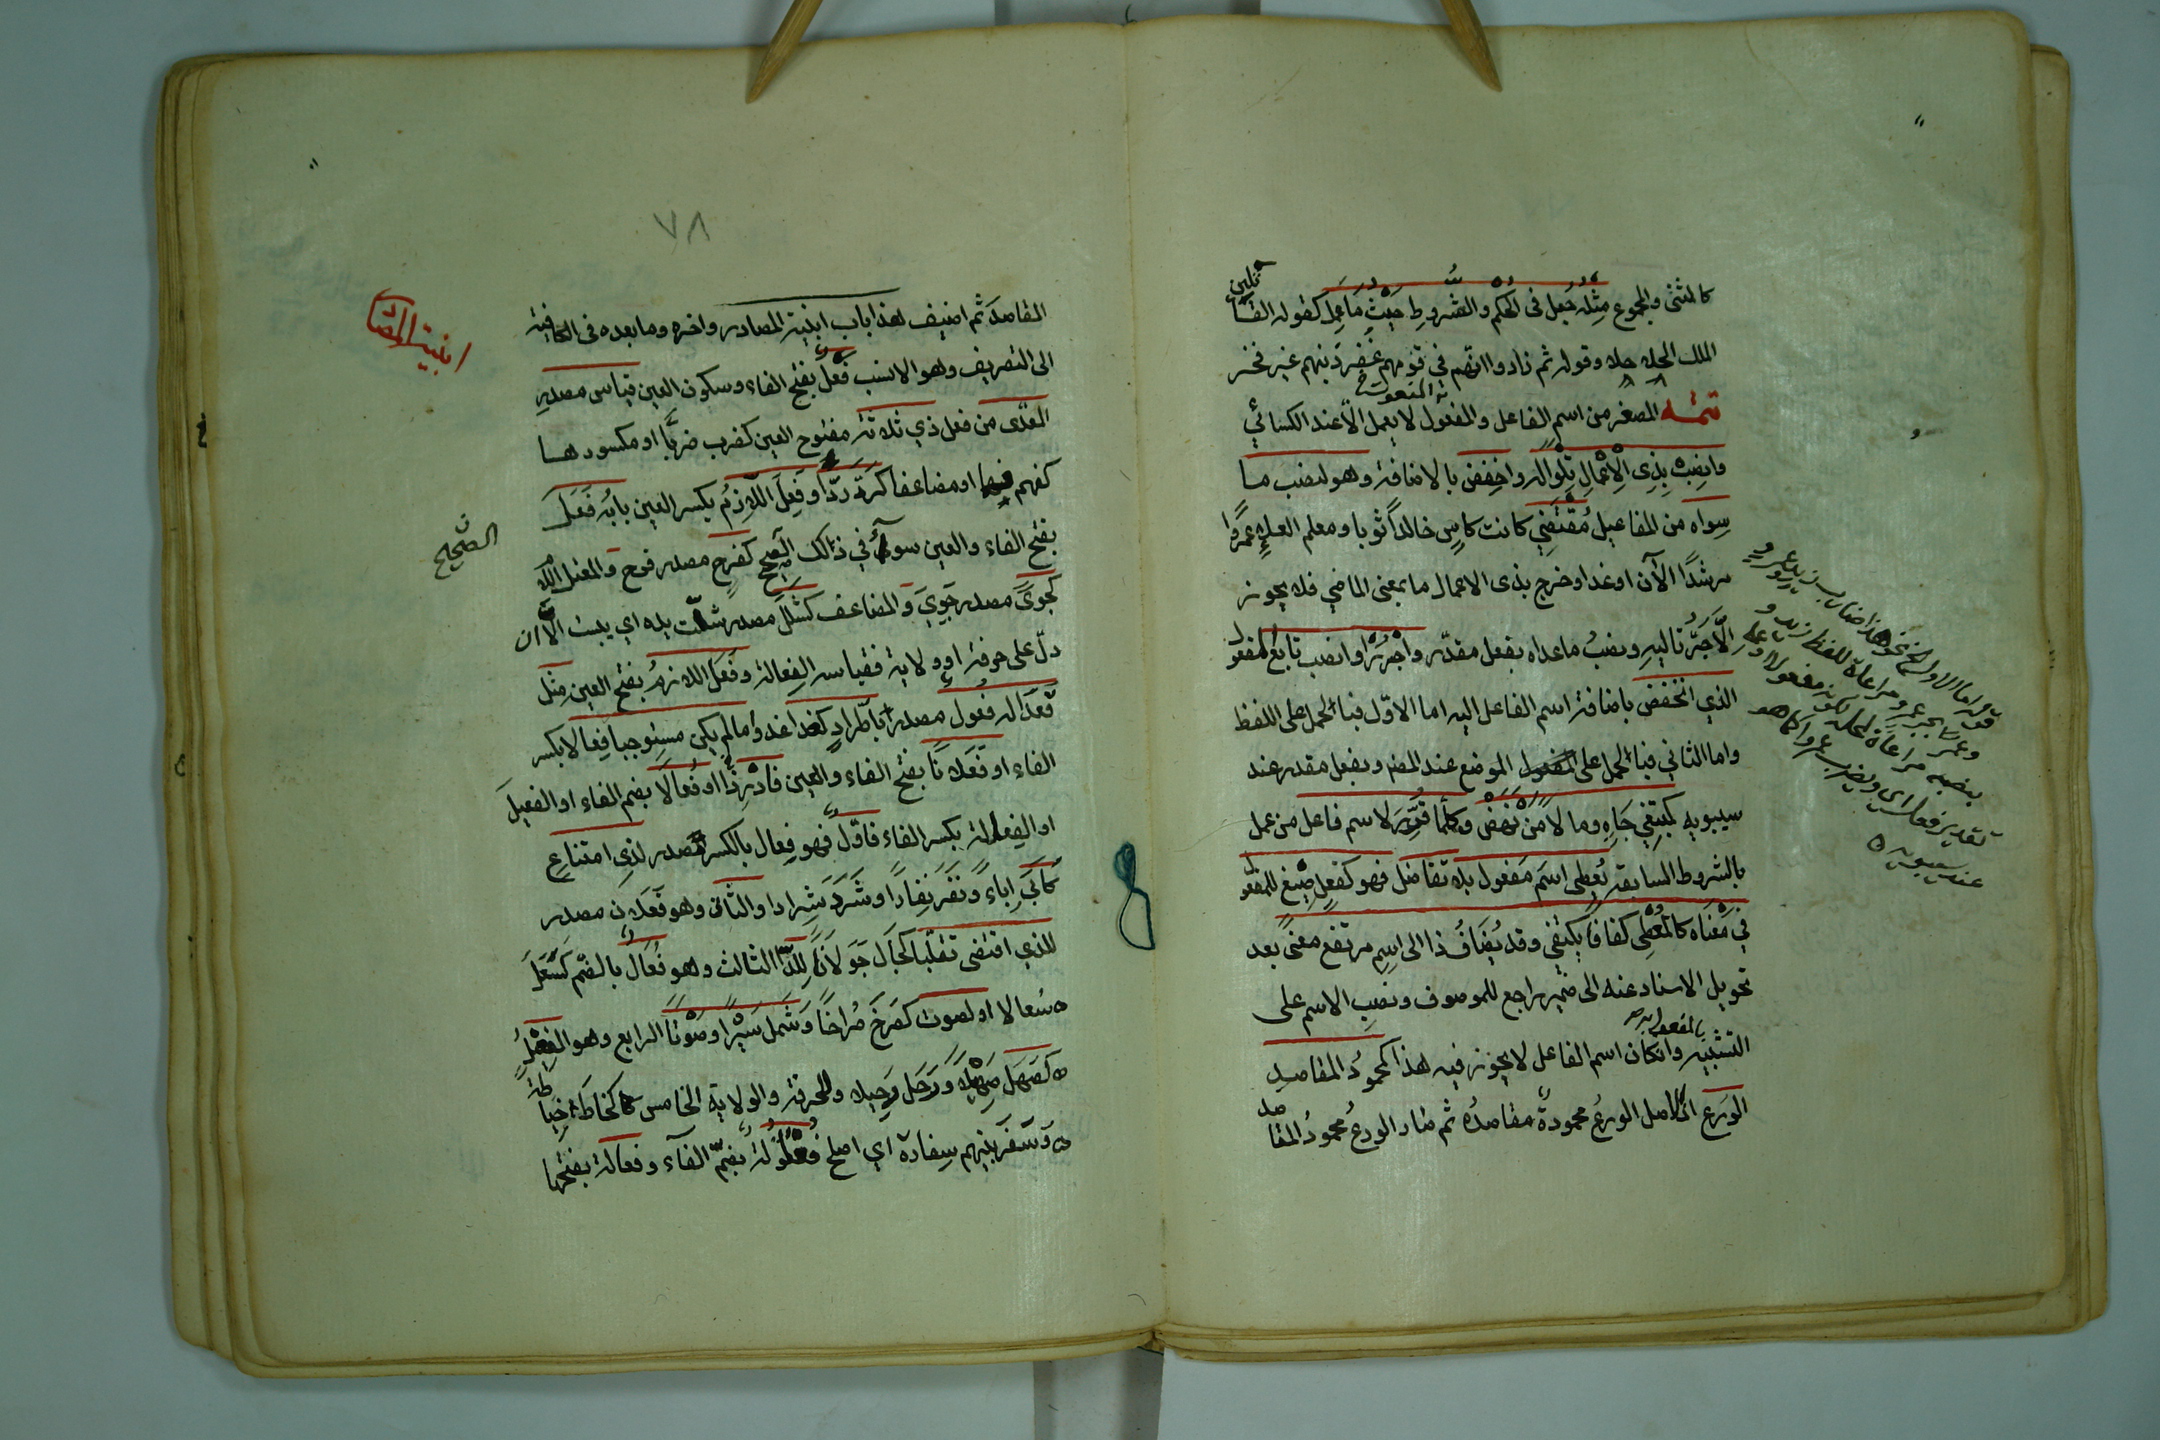 كالمثنى والمجموع مثله جعل في الحكم والشروط حيث ما عمل كقوله القا تلين
الملك الحلا حلا وقوله ثم زادوا انهم في قومهم غفر ذنبهم غير فخر
تتمه المصغر من اسم الفاعل والمفعول لا يعمل الا عند الكسائي
وانصب بذي الاعمال تلوا له واخفض بالاضافة وهو لنصب ما
سواه من المفاعيل مقتضي كانت كاس خالدا ثوبا ومعلم العلاء عمرا
مرشدا الآن او غدا وخرج بذى الاعمال ما بمعنى الماضي فلا يجوز
الا جر تاليه ونصب ما عداه بفعل مقدر واجرر او انصب تابع المفعول
الذي انخفض باضافة اسم الفاعل اليه اما الاول فبالحمل على اللفظ
واما الثاني فبالحمل على الموضع عند المصـ وبفعل مقدر عند
سيبويه كمبتغي جاه ومالا من نهض وكلما قرر لاسم فاعل من عمل
بالشروط السابقة يعطى اسم مفعول بلا تفاضل فهو كفعل صيغ للمفعول
في معناه كالمعطى كفافا يكتفي وقد يضاف ذا الى اسم مرتفع معنى بعد
تحويل الاسناد عنه الى ضمير راجع للموصوف ونصب الاسم على
التشبيه بالمفعول به وان كان اسم الفاعل لا يجوز فيه هذا كمحمود المقاصد
الورع اذ الاصل الورع محمودة مقاصده ثم صار الورع محمود المقا صد
قوله اما الاول الخ نحو هذا ضارب زيد وعمرو
وعمرا بجر عمرو مراعاة للفظ زيد و
بنصبه مراعاة لمحله لكونه مفعولا
تقدير فعل اى ويضرب عمروا كما هو
عند سيبويه
٧٨
ابنية المصادر
المقاصد ثم اضيف هذا باب ابنية المصادر واخره وما بعده في الكافية
الى التصريف وهو الانسب فعل بفتح الفاء وسكون العين قياس مصدر
المعدى من فعل ذي ثلاثة مفتوح العين كضرب ضربا او مكسورها
كفهم فهما او مضاعفا كرد ردا وفعل اللازم بكسر العين بابه فعل
بفتح الفاء والعين سواء في ذلك الصحيح كفرح مصدر فرح والمعتل اللام
الصحيح
كجوى مصدر جوي والمضاعف كشلل مصدر شلت يده اي يبست الا ان
دل على حرفة او ولاية فقياسه الفعالة وفعل اللازم بفتح العين مثل
قعدا له فعول مصدر باطراد كغدا غدوا ما لم يكن مستوجبا فعالا بكسر
الفاء او فعلانا بفتح الفاء والعين فادر ذا او فعالا بضم الفاء او الفعيل
او الفعالة بكسر الفاء فاول فهو فعال بالكسر مصدر لذي امتناع
كابى اباء ونفر نفارا وشرد شرادا والثاني وهو فعلان مصدر
للذي اقتضى تقلبا كجال جولانا للدا الثالث وهو فعال بالضم كسعل
سعالا او لصوت كصرخ صراخا وشمل سيرا وصوتا الرابع وهو الفعيل
كصهل صهيلا ورحل رحيلا وللحرفة والولاية الخامس كخاط خياطة
وسفر بينهم سفارة اي اصلح فعولة بضم الفاء وفعالة بفتحها